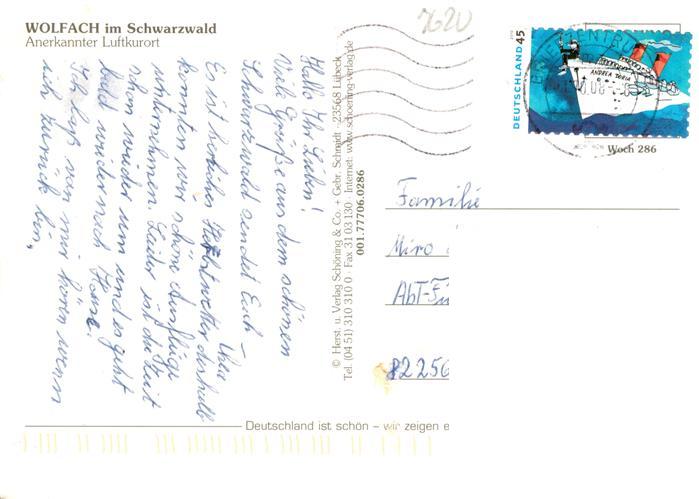 WOLFACH im Schwarzwald
Anerkannter Luftkurort
Hallo Ihr Lieben!
Viele Grüße aus dem schönen
Schwarzwald sendet Euch –
Es ist herrliches Herbstwetter deshalb
konnten wir schöne Ausflüge
unternehmen. Leider ist die Zeit
schon wieder um und es geht
bald wieder nach Hause!
Ich laß von mir hören wenn
ich zurück bin.
© Herst. u. Verlag Schöning & Co. + Gebr. Schmidt · 23568 Lübeck
Tel. (04 51) 310 310 0 · Fax 31 03 130 · Internet: www.schoening-verlag.de
001.77706.0286
7620
DEUTSCHLAND 45
ANDREA TORIA
Woch 286
Familie
Miro
Abt-Fü
82256
Deutschland ist schön – wir zeigen e